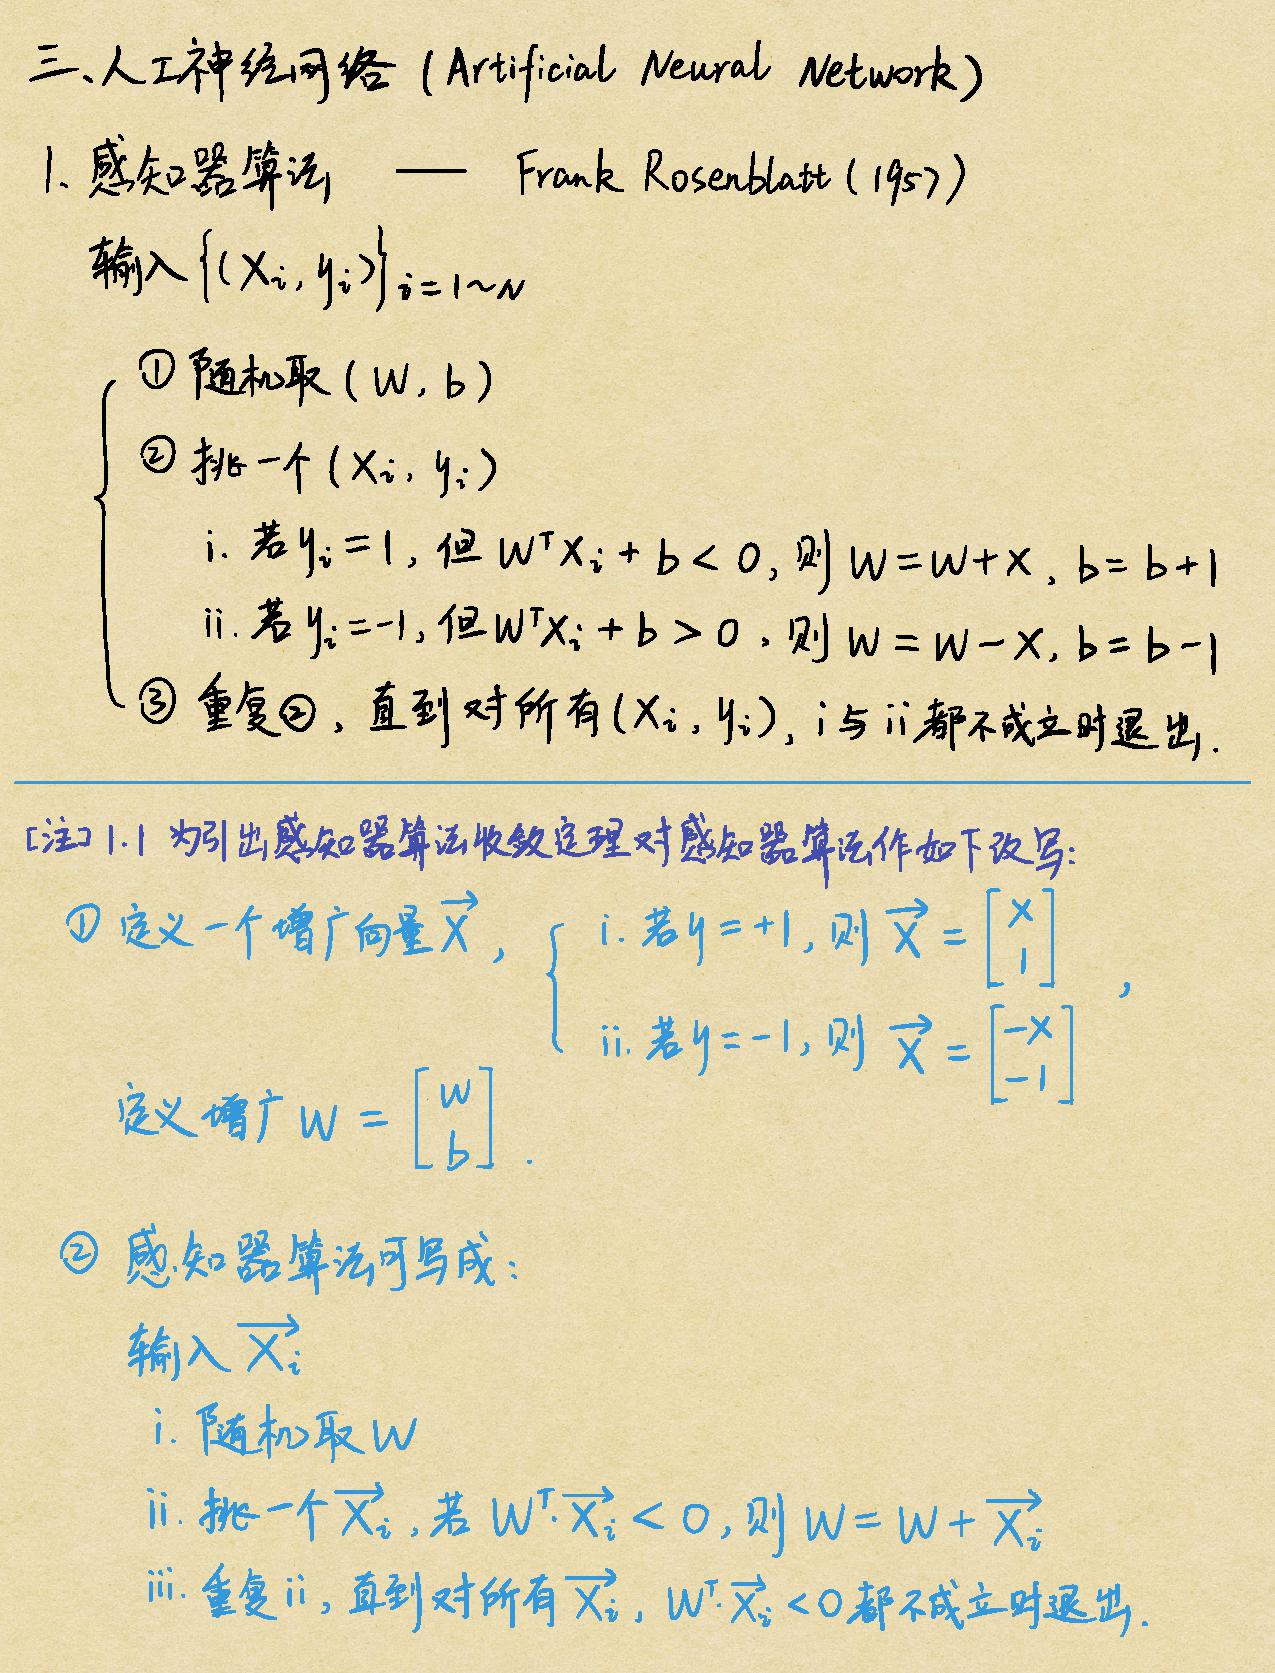 三、人工神经网络 (Artificial Neural Network)
1. 感知器算法 —— Frank Rosenblatt (1957)
输入 {(Xi, yi)}i=1~N
① 随机取 (W, b)
② 挑一个 (Xi, yi)
i. 若 yi = 1, 但 WᵀXi + b < 0, 则 W = W + X, b = b + 1
ii. 若 yi = -1, 但 WᵀXi + b > 0, 则 W = W - X, b = b - 1
③ 重复②, 直到对所有 (Xi, yi), i 与 ii 都不成立时退出.
[注] 1.1 为引出感知器算法收敛定理对感知器算法作如下改写:
① 定义一个增广向量 X⃗, { i. 若 y = +1, 则 X⃗ = [X 1],
ii. 若 y = -1, 则 X⃗ = [-X -1]
定义增广 W = [W b].
② 感知器算法可写成:
输入 X⃗i
i. 随机取 W
ii. 挑一个 X⃗i, 若 Wᵀ·X⃗i < 0, 则 W = W + X⃗i
iii. 重复 ii, 直到对所有 X⃗i, Wᵀ·X⃗i < 0 都不成立时退出.